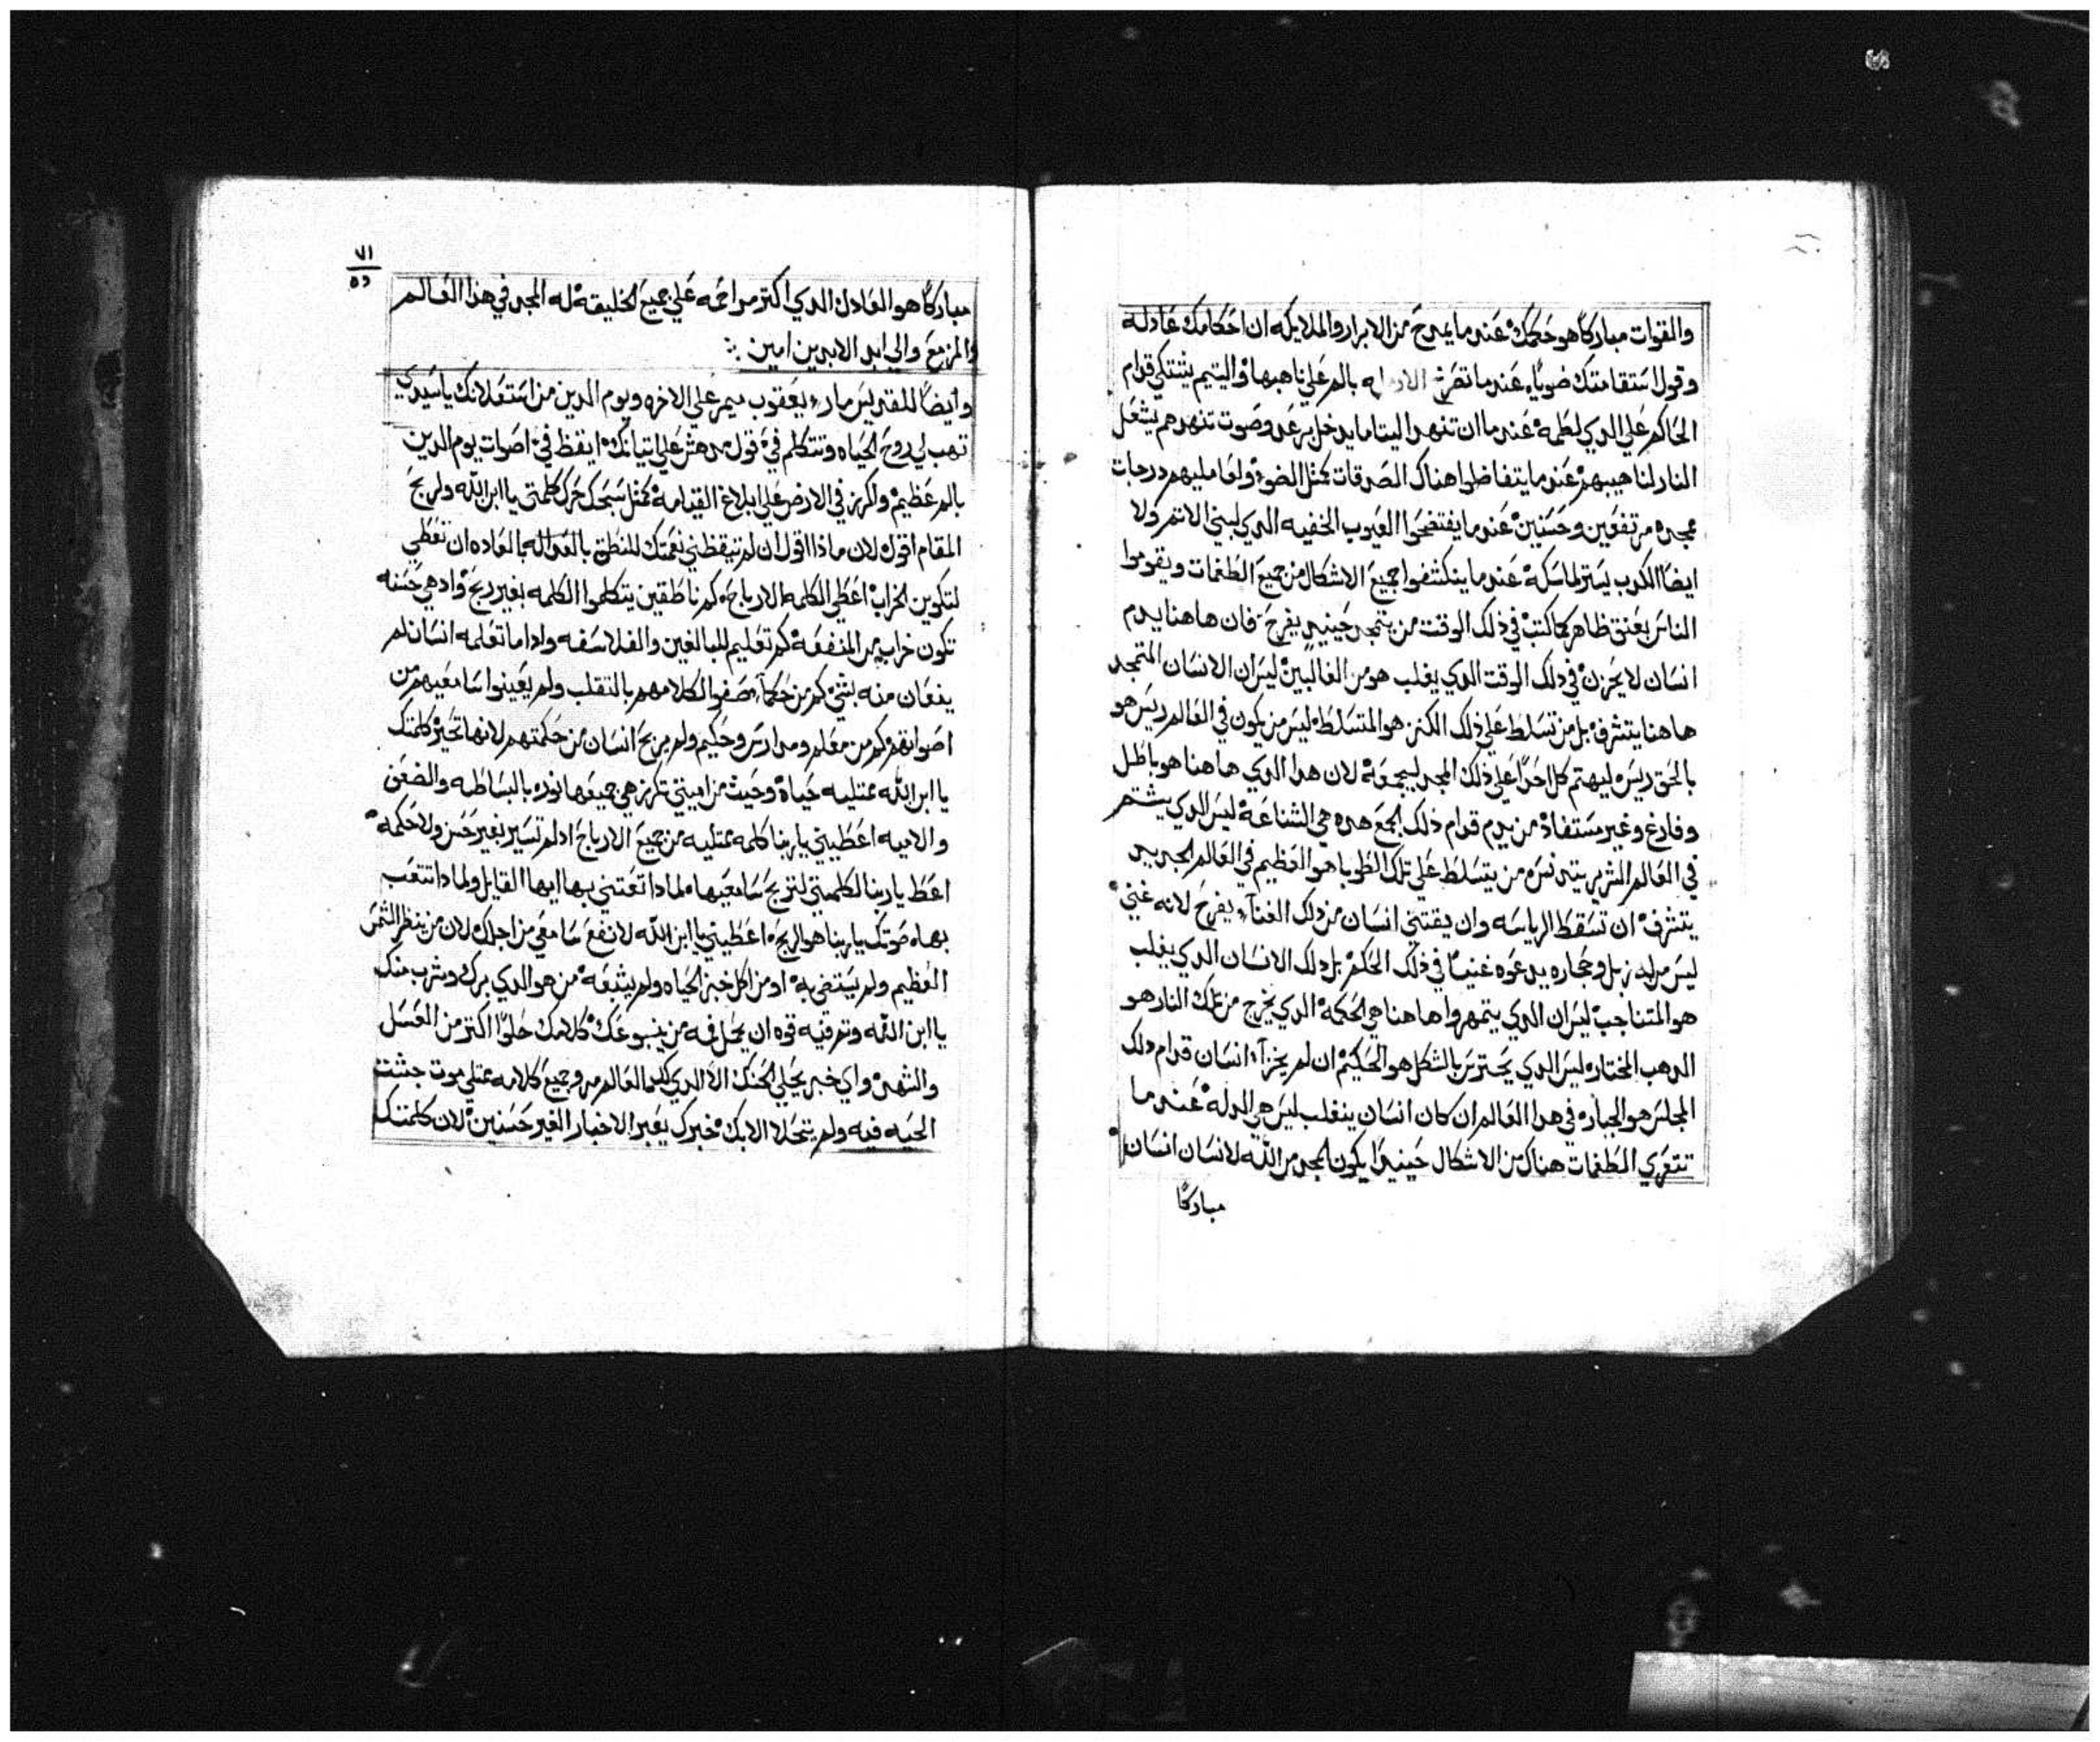 والقوات مباركًا هو حكمك عندما يمدح من الابرار والملايكه ان احكامك عادله
وقول استقامتك ضويًا عندما تصرخ بالم علي ناهبها واليتيم يشتكي قدام
الحاكم علي الدي لطمه عندما ان تنهد اليتاما يدخل برعد وصوت تنهدهم يشعل
النار لناهيبهم عندما يتفاضلوا هناك الصدقات كمثل الضو ولعامليهم درجات
مجده مرتفعين وحسنين عندما يفتضحوا العيوب الخفيه الدي لبني الاتم ولا
ايضًا الكدب يستر لماسكه عندما ينكشفوا جميع الاشكال من جميع الطغمات ويقوموا
الناس بعنق ظاهر كما كتب في ذلك الوقت من يتمجد حينيدٍ يفرح فان هاهنا يدم
انسان لا يحزن في دلك الوقت الدي يغلب هو من الغالبين ليس ان الانسان المتمجد
هاهنا يتشرف بل من تسلط علي ذلك الكنز هو المتسلط ليس من يكون في العالم ريس هو
بالحق ريس ليهتم كل احدًا علي ذلك المجد ليجمعه لان هدا الدي هاهنا هو باطل
وفارغ وغير مستفاد من يدم قدام ذلك الجمع هده هي الشناعه ليس الدي يشتم
في العالم الشرير يتدنس من يتسلط علي تلك الطوبا هو العظيم في العالم الجديد
يتشرف ان تسقط الرياسه وان يقتني انسان من دلك الغنآ يفرح لانه غني
ليس من له زبل وحجاره يدعوه غنيًا في ذلك الحكم بل دلك الانسان الدي يغلب
هو المتناجب ليس ان الدي يتمهروا هاهنا هي الحكمه الدي يخرج من تلك النار هو
الدهب المختاره ليس الدي يحترس بالشكل هو الحكيم ان لم يخزآ انسان قدام دلك
المجلس هو الجباره في هدا العالم ان كان انسان ينغلب ليس هي الدله عندما
تتعري الطغمات هناك من الاشكال حينيدًا يكون المجد من الله لانسان انسان
مباركًا
٧١
مباركًا هو العادل الدي اكتر مراحمه علي جميع الخليقه له المجد في هذا العالم
والمزمع والي ابد الابدين امين
وايضًا للقديس مار يعقوب ميمر علي الاخره ويوم الدين من استعلانك ياسيدي
تهب لي روح الحياه وتتكلم في قول مدهش علي اتيانك ايقظ في اصوات يوم الدين
بالم عظيم واكرز في الارض علي ابلاغ القيامه كمثل سبحك حرك كلمتي يا ابن الله ولربح
المقام اقول لان ماذا اقول ان لم تيقظني نعمتك للنطق بالعداله بالعاده ان تعطي
لتكوين الخراب اعطي الكلمه الارباح كم ناطقين يتكلموا الكلمه بغير ربح واد هي حسنه
تكون خراب من المنفعه كم تعليم للبالغين والفلاسفه وادا ما تعلمه انسان لم
ينعان منه بشئ كم من حكمآ صفوا الكلامهم بالتقلب ولم يعينوا سامعيهم من
اصواتهم كم من معلم ومدارس وحكيم ولم يربح انسان من حكمتهم لانها تحيز كلمتك
يا ابن الله ممتليه حياة وحيث من اميتي تكرز هي جميعها نوره بالبساطه والضعف
والاميه اعطيني ياربنا كلمه ممتليه من جميع الارباح اد لم تسير بغير حسن ولا حكمه
اعط ياربنا لكلمتي لتربح سامعيها ولمادا تعتني بها ايها القايل ولمادا تتعب
بها صوتك ياربنا هو الربح اعطيني يا ابن الله لانفع سامعي من اجلك لان من ينظر الشمس
العظيم ولم يستضي به او من اكل خبز الحياه ولم يشبعه من هو الدي بركه وشرب منك
يا ابن الله وتعرقيه قوه ان يحل فمه من ينبوعك كلامك حلوًا اكتر من العسل
والشهد واي خبر يحلي الحنك الا الدي لك العالم مر وجميع كلامه ممتلي موت جشت
الحيه فيه ولم يتحلا الا بك خبرك يعبر الاخبار الغير حسنين لان كلمتك